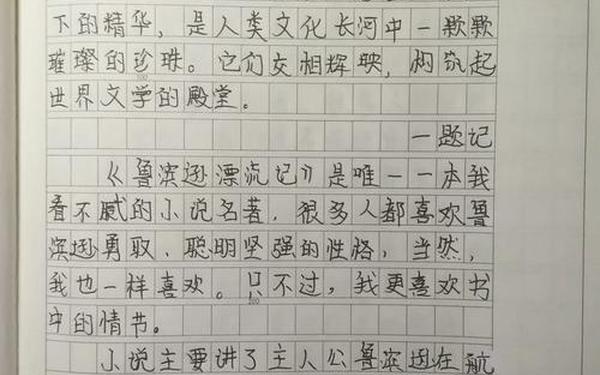 下的精华，是人类文化长河中一颗颗
璀璨的珍珠。它们交相辉映，构筑起
100
世界文学的殿堂。
一题记
《鲁滨逊漂流记》是唯一一本我
看不腻的小说名著，很多人都喜欢鲁
滨逊勇敢、聪明坚强的性格，当然，
我也一样喜欢。只不过，我更喜欢书
200
中的情节。
小说主要讲了主人公鲁滨逊在航